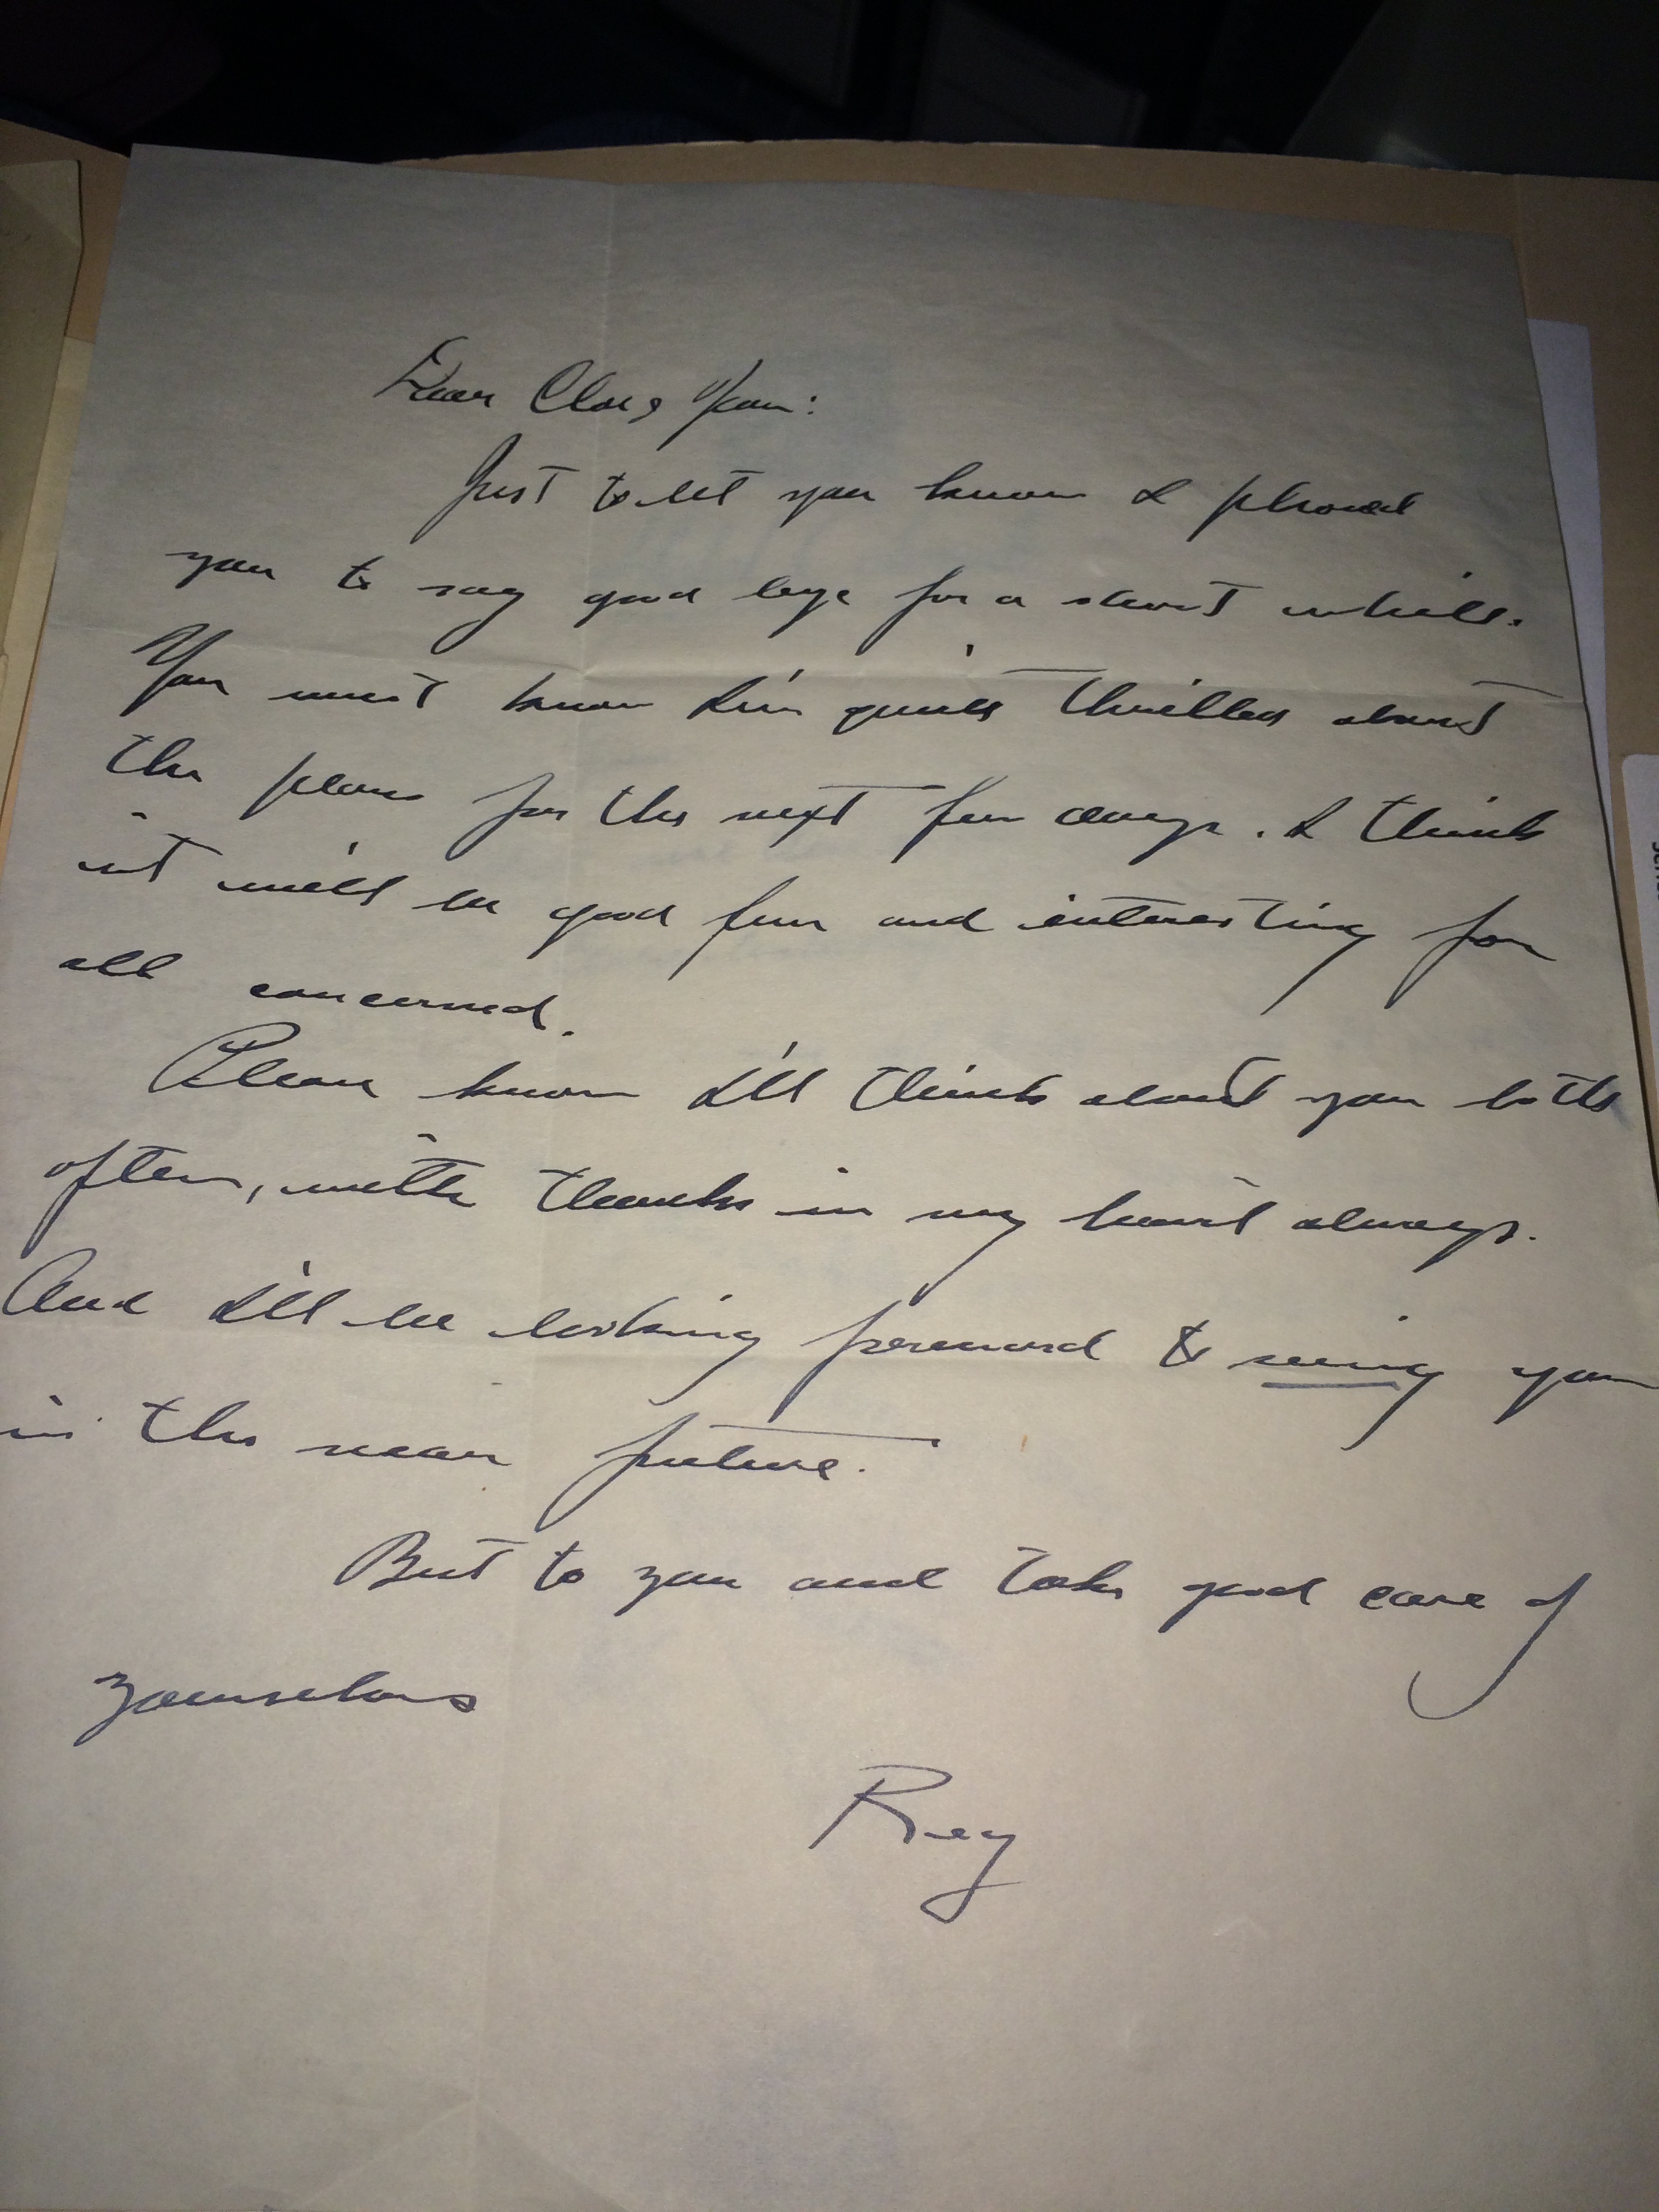 Dear
Just to let you know I phoned
you to say good bye for a short while.
You must know I'm quite thrilled about
the plans for the next few days. I think
it will be good fun and interesting for
all concerned.
Please know I'll think about you both
often, with thanks in my heart always.
And I'll be looking foreward to seeing you
in the near future.
Best to you and take good care of
yourselves
Reg